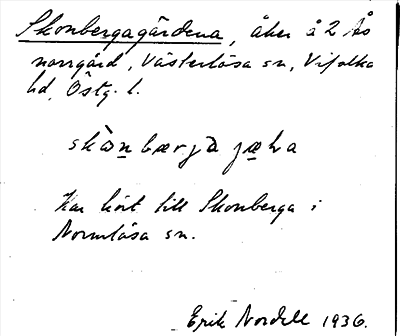 Skonbergagärdena, åker å 2 Ås
norrgård, Västerlösa sn, Vifolka
hd, Östg. l.
skònbærja jæḷna
Har hört till Skonberga i
Normlösa sn.
Erik Nordell 1936.